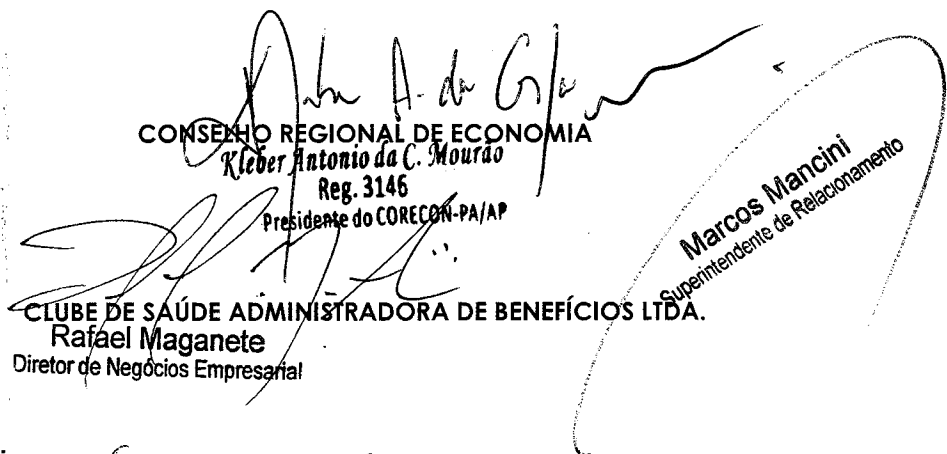 CONSELHO REGIONAL DE ECONOMIA
Kleber Antonio da C. Mourão
Reg. 3146
Presidente do CORECON-PA/AP
Marcos Mancini
Superintendente de Relacionamento
CLUBE DE SAÚDE ADMINISTRADORA DE BENEFÍCIOS LTDA.
Rafael Maganete
Diretor de Negócios Empresarial